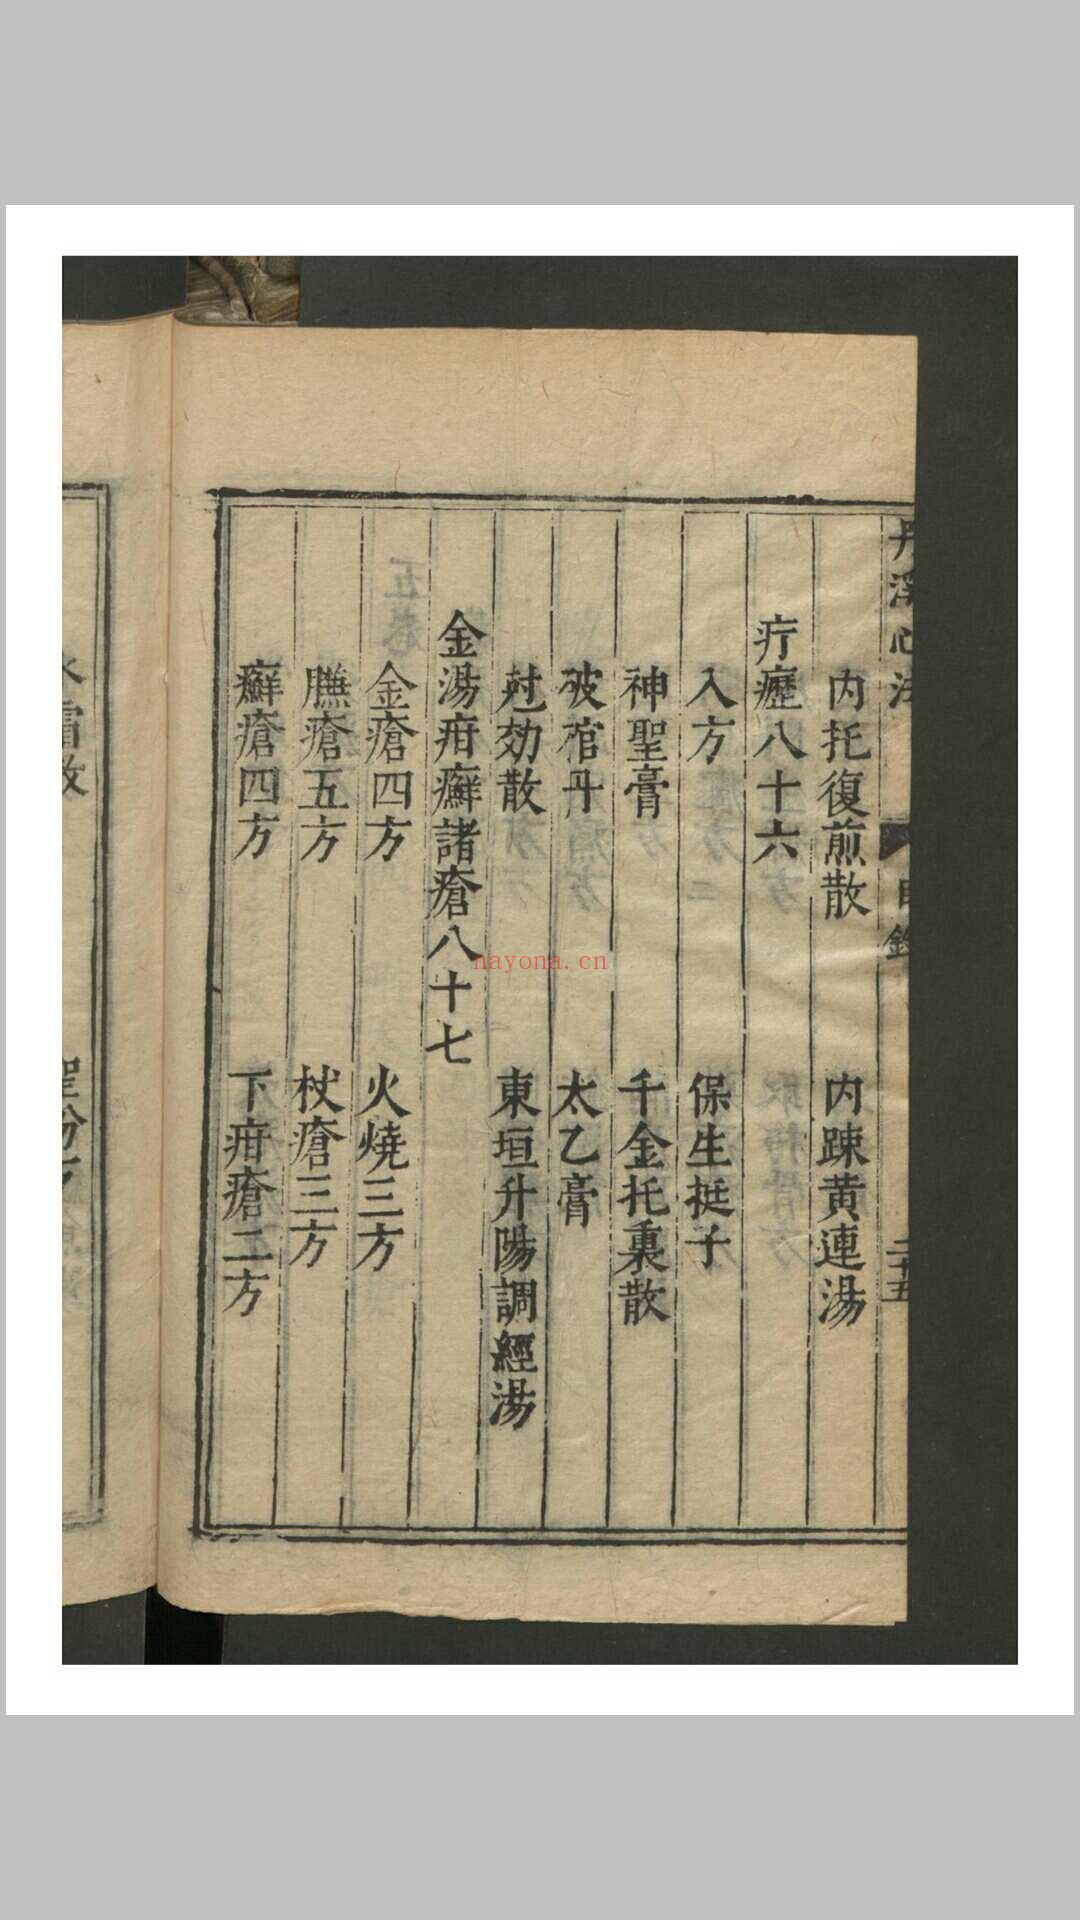 丹溪心法 目錄 二十五
內托復煎散 內踈黄連湯
疔癧八十六
入方 保生挺子
神聖膏 千金托裏散
破棺丹 太乙膏
尅効散 東垣升陽調經湯
金湯疳癬諸瘡八十七
金瘡四方 火燒三方
臁瘡五方 杖瘡三方
癬瘡四方 下疳瘡二方
nayona.cn